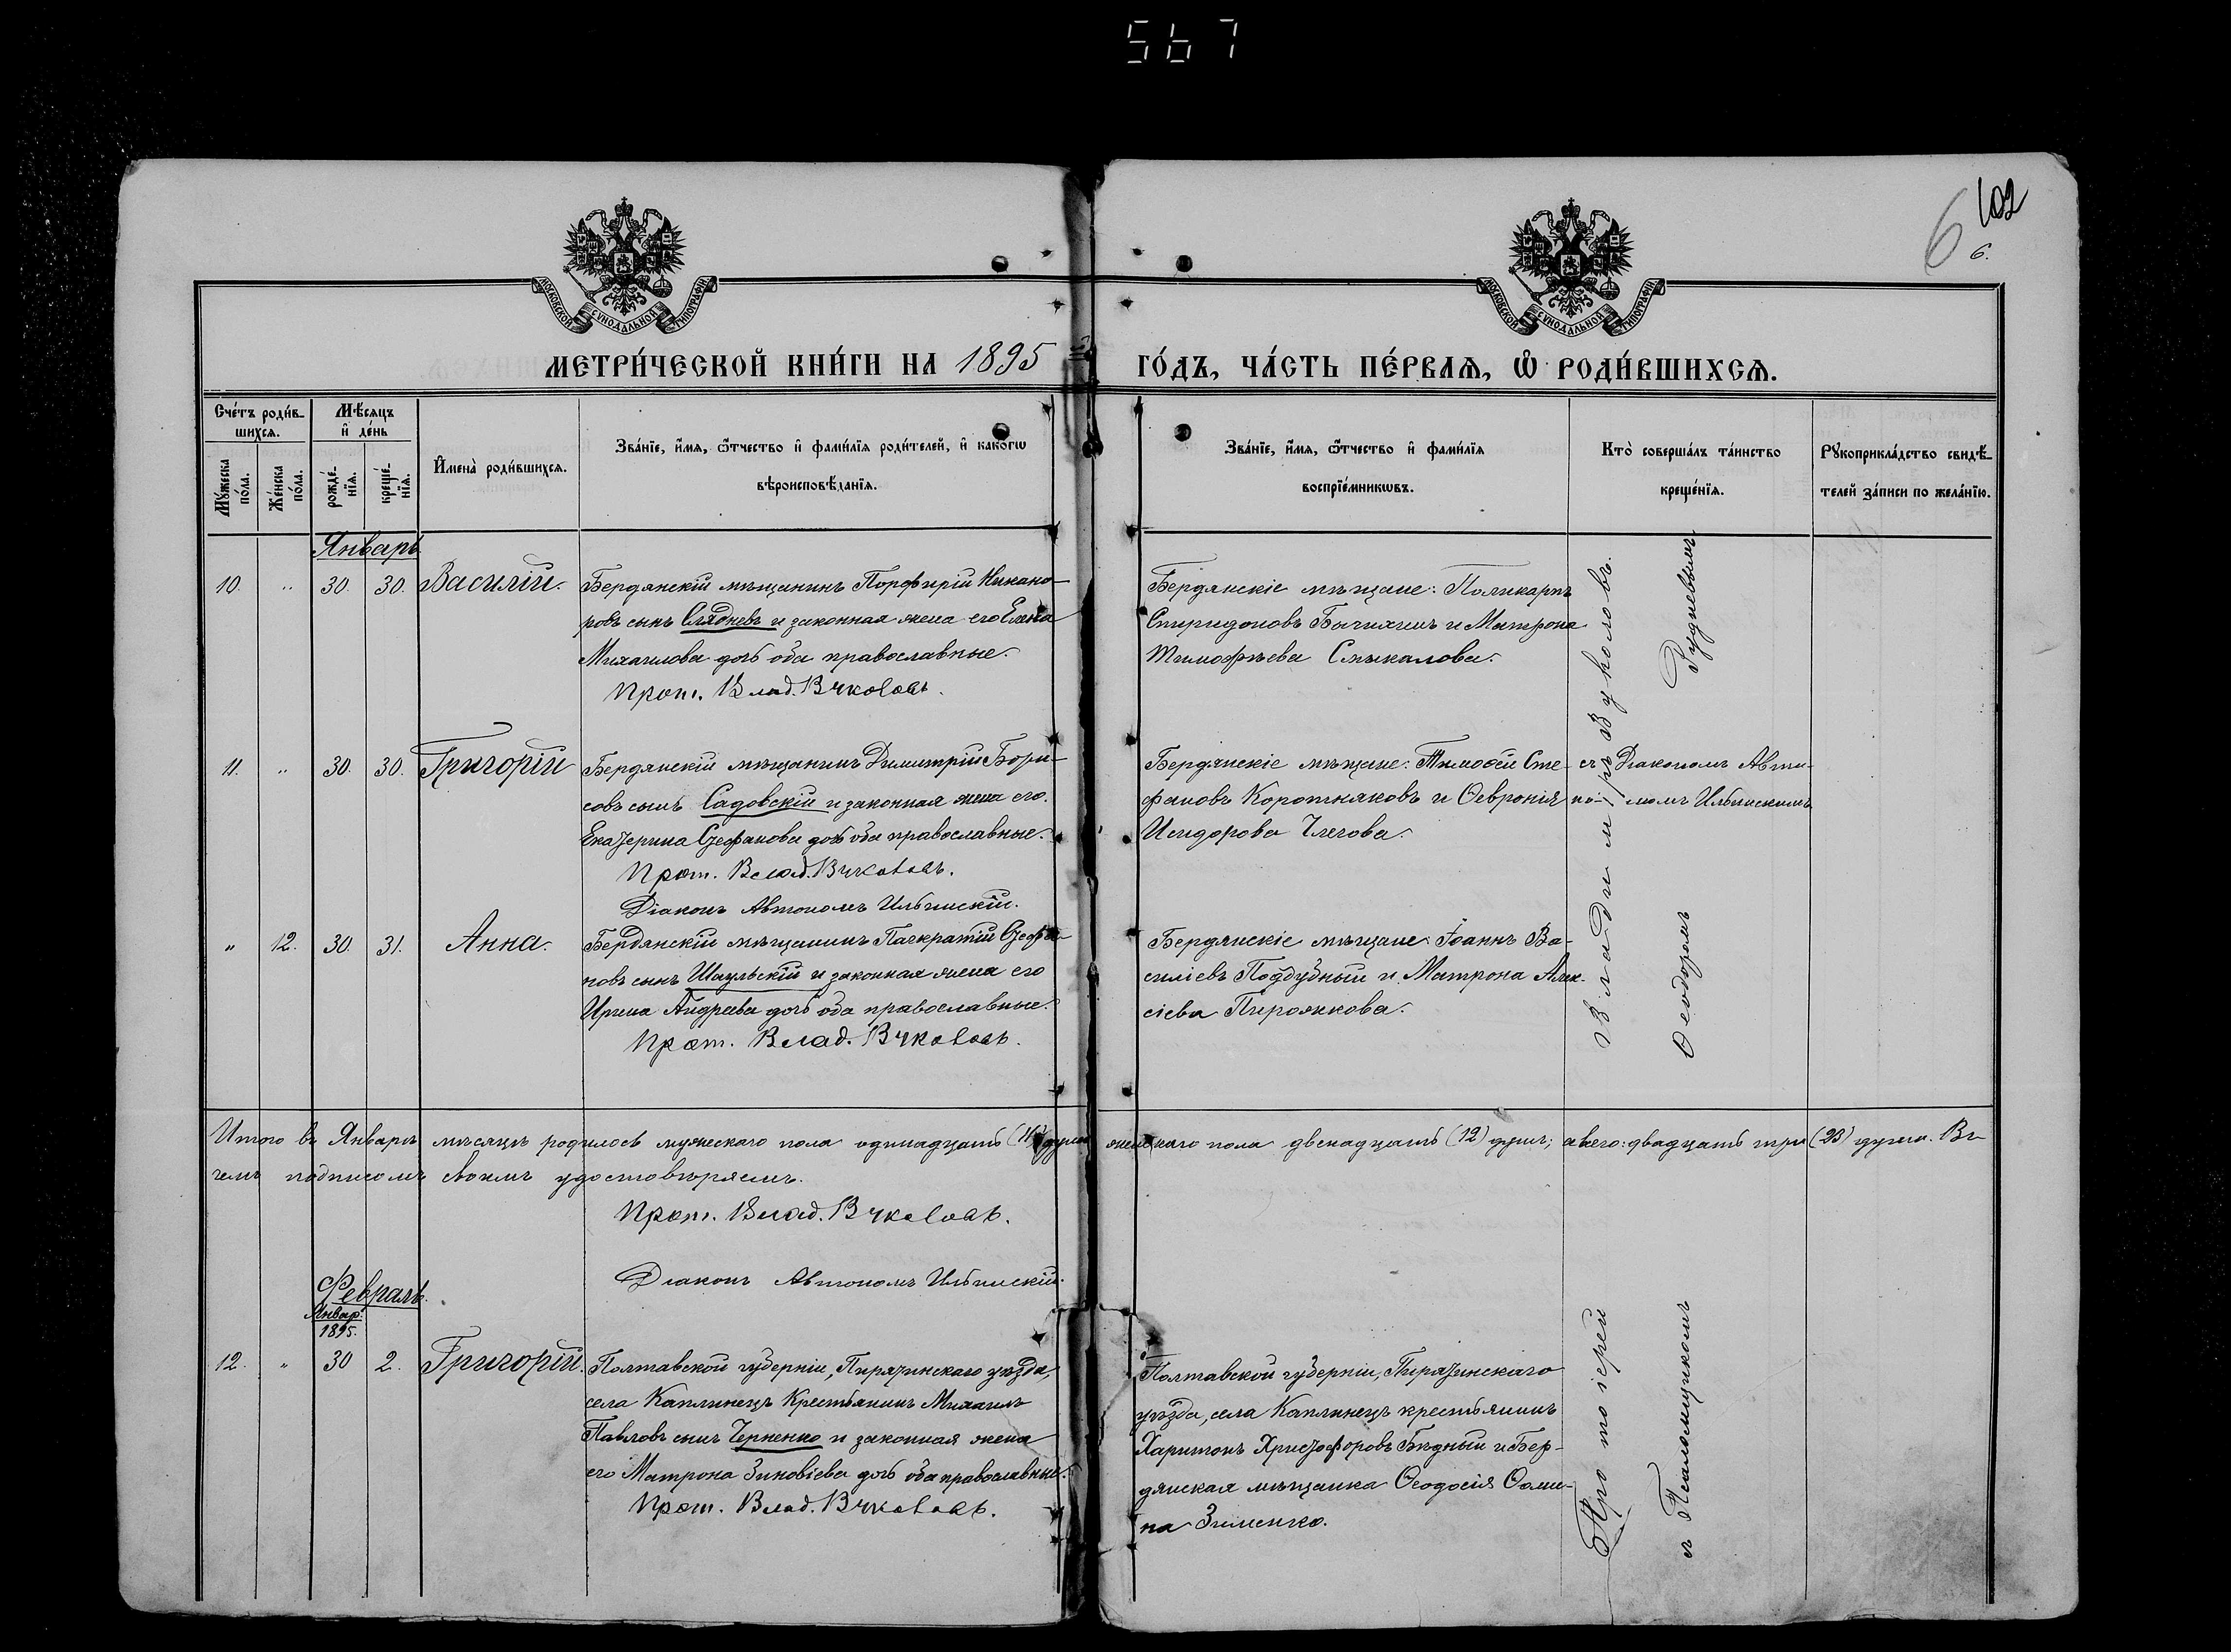 567
102
6
6.
МОСКОВСКОЙ СѴНОДАЛЬНОЙ ТИПОГРАФІИ
МОСКОВСКОЙ СѴНОДАЛЬНОЙ ТИПОГРАФІИ
МЕТРИ́ЧЕСКОЙ КНИ́ГИ НА 1895 ГО́ДЪ, ЧА́СТЬ ПЕ́РВАѦ, Ѽ РОДИ́ВШИХСѦ.
Сче́тъ роди́в-
шихсѧ.
Мѣ́сѧцъ
и҆ де́нь
Мꙋ́жеска по́ла.
Же́нска по́ла.
рожде́-нїѧ.
креще́-нїѧ.
И҆мена̀ роди́вшихсѧ.
Зва́нїе, и҆́мѧ, ѻ҆́тчество и҆ фами́лїѧ роди́телей, и҆ како́гѡ
вѣроисповѣ́данїѧ.
Зва́нїе, и҆́мѧ, ѻ҆́тчество и҆ фами́лїѧ
воспрїе́мникѡвъ.
Кто̀ соверша́лъ та́инство
креще́нїѧ.
Рꙋкоприкла́дство свидѣ́-
телей за́писи по жела́нїю.
Январь
10. " 30. 30. Василій.
Бердянскій мѣщанинъ Порфирій Никано-
ровъ сынъ Слядневъ и законная жена его Елена
Михаилова дочь оба православные.
Прот. Влад. Вуколовъ.
Бердянскіе мѣщане: Поликарпъ
Спиридоновъ Бычихинъ и Матрона
Тимофѣева Смыкалова.
11. " 30. 30. Григорій
Бердянскій мѣщанинъ Димитрій Бори-
совъ сынъ Садовскій и законная жена его
Екатерина Стефанова дочь оба православные.
Прот. Влад. Вуколовъ.
Діаконъ Автономъ Ильинскій.
Бердянскіе мѣщане: Тимофей Сте-
фановъ Коротняковъ и Ѳевронія
Исидорова
съ Діакономъ Авто-
но-момъ Ильинскимъ
" 12. 30. 31. Анна.
Бердянскій мѣщанинъ Панкратій Стефа-
новъ сынъ Шаульскій и законная жена его
Ирина Андреева дочь оба православные.
Прот. Влад. Вуколовъ.
Бердянскіе мѣщане: Іоаннъ Ва-
силіевъ Поддубный и Матрона Алек-
сіева
Итого въ Январѣ мѣсяцѣ родилось мужескаго пола одинадцать (11) душъ женскаго пола двенадцать (12) душъ; а всего: двадцать три (23) души. Въ
чемъ подписомъ своимъ удостовѣряемъ.
Прот. Влад. Вуколовъ.
Діаконъ Автономъ Ильинскій.
Февраль.
Январ.
1895.
12. " 30 2. Григорій.
Полтавской губерніи, Пирятинскаго уѣзда,
села Каплинецъ Крестьянинъ Михаилъ
Павловъ сынъ Черненко и законная жена
его Матрона Зиновіева дочь оба православные.
Прот. Влад. Вуколовъ.
Полтавской губерніи, Пирятинскаго
уѣзда, села Каплинецъ крестьянинъ
Харитонъ Христофоровъ Бѣдный и Бер-
дянская мѣщанка Ѳеодосія Ѳоми-
на Зименко.
Протоіерей Владиміръ Вуколовъ.
съ Псаломщикомъ Ѳеодоромъ Рудневымъ